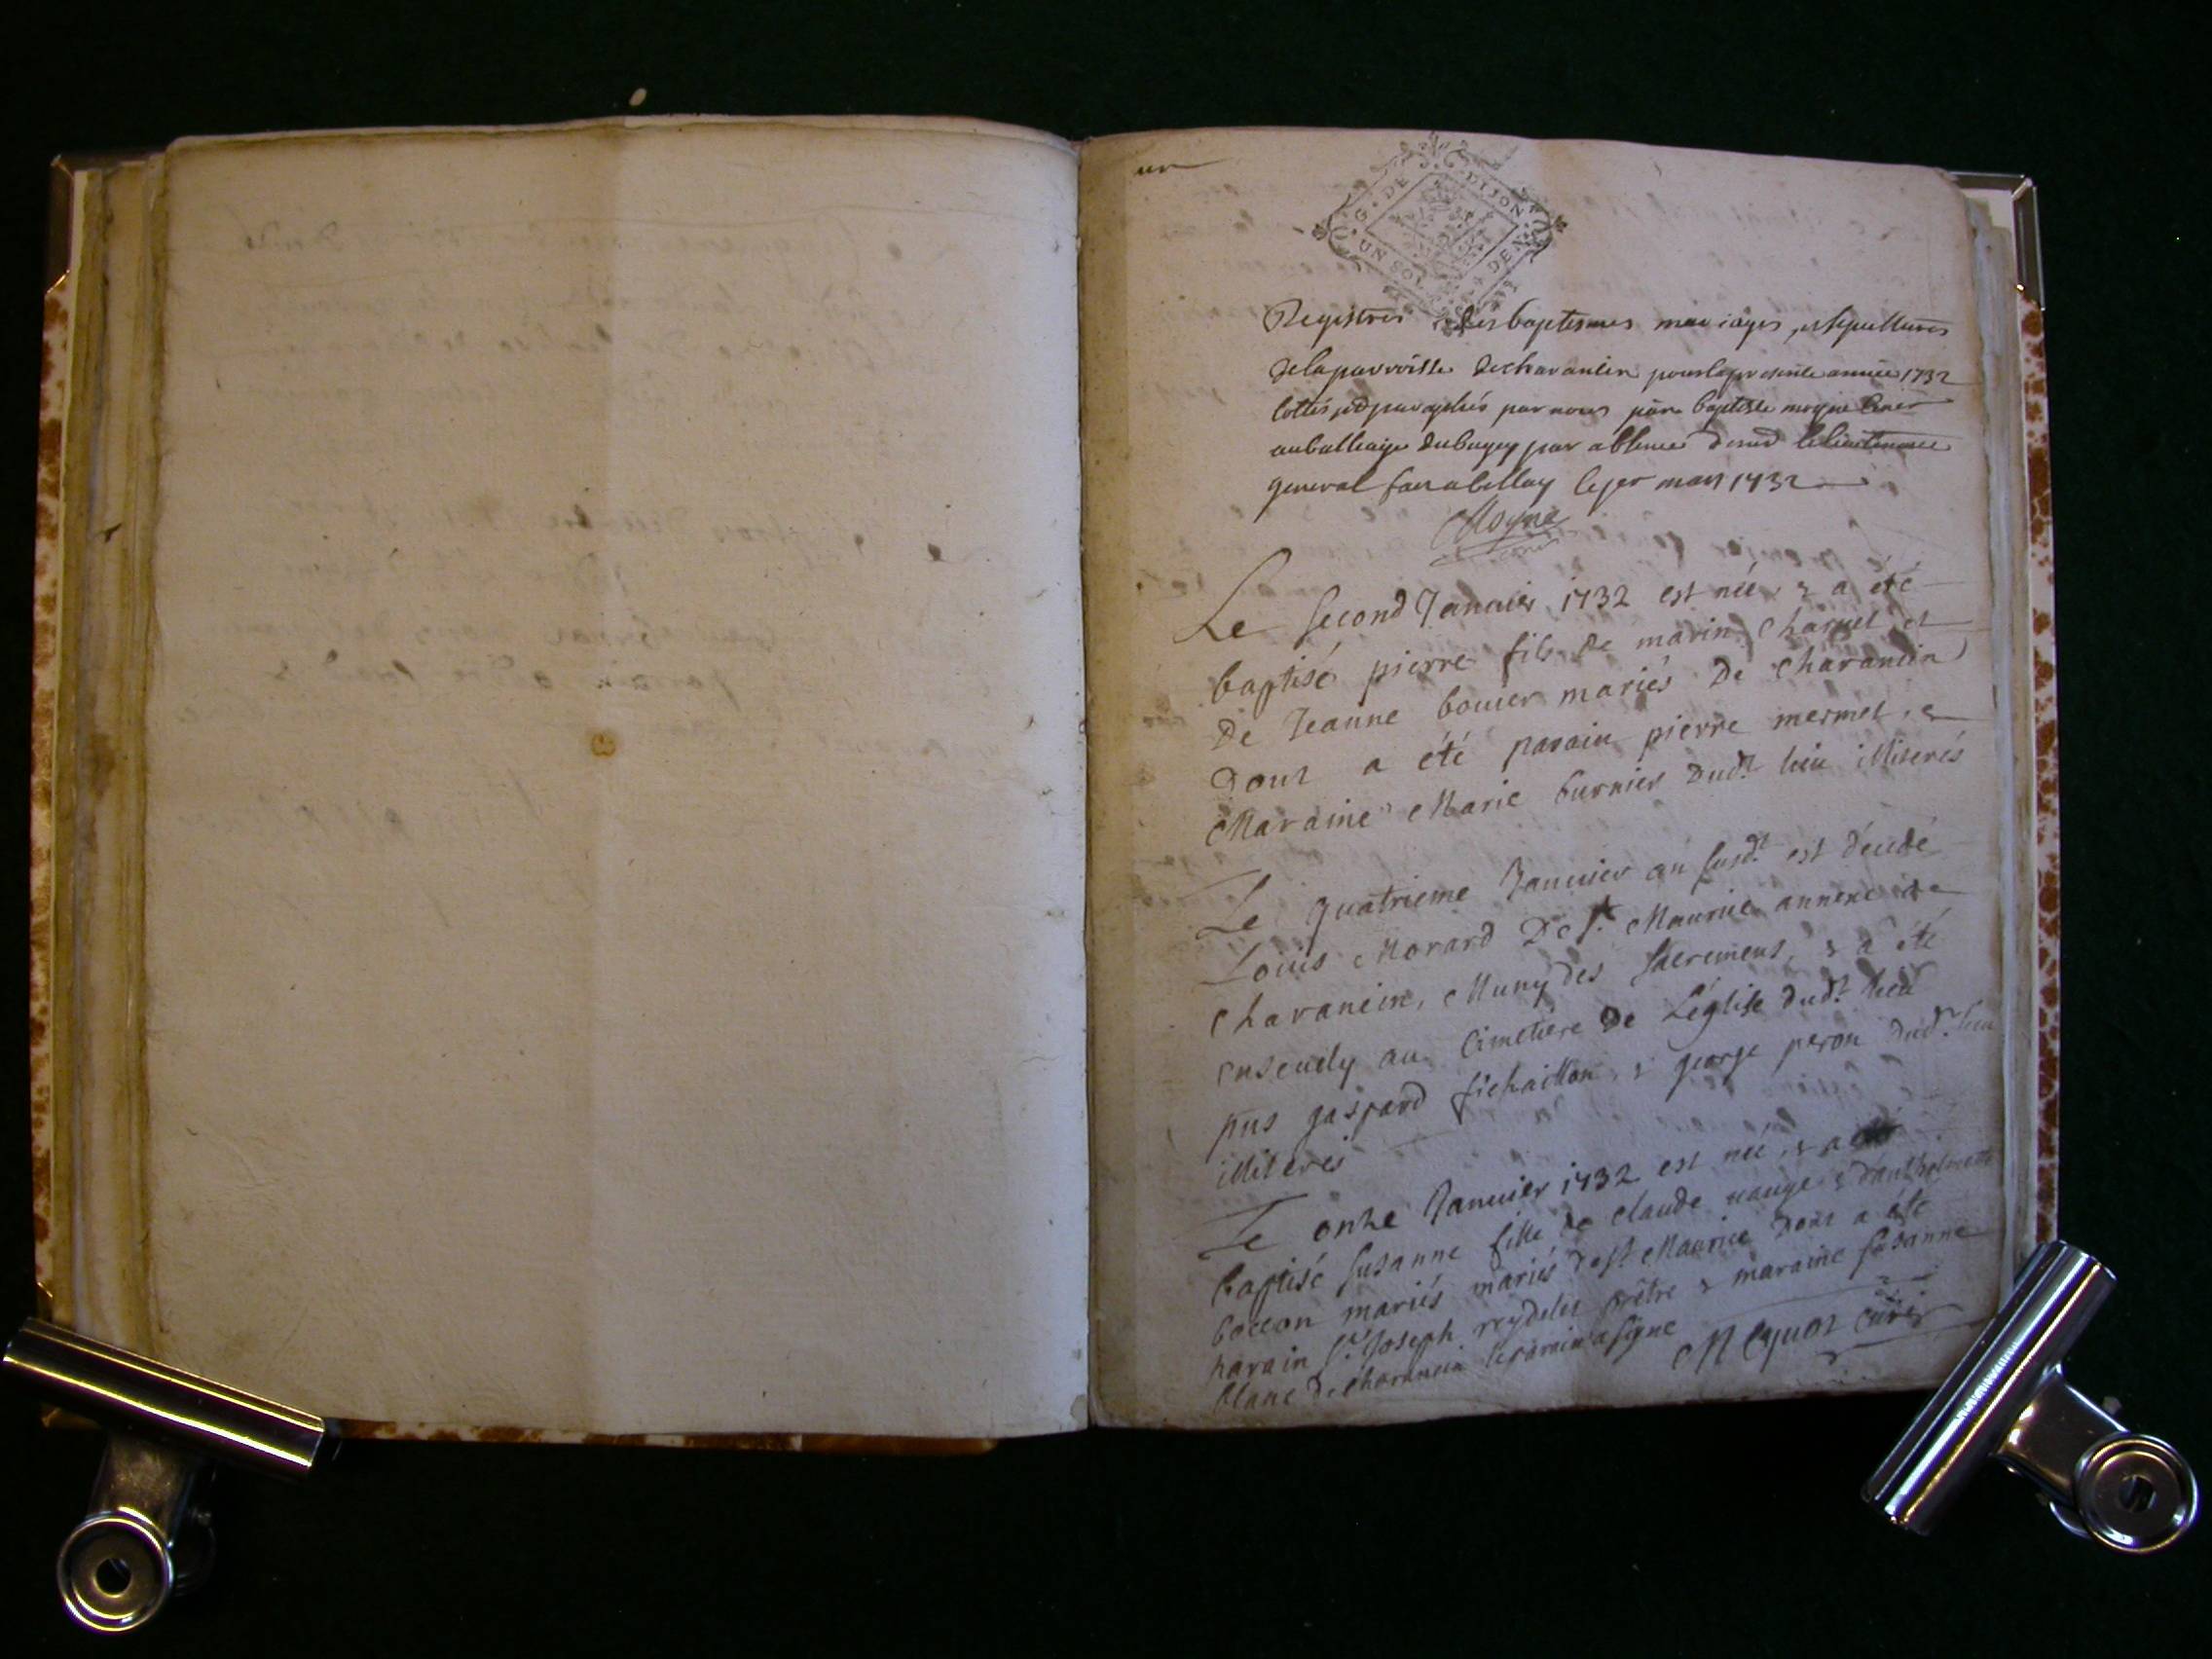 un
G. DE DIJON
UN SOL DEN
Registres des baptesmes mariages et sepultures
de la parroisse de charancin pour la presente année 1732
cottés et paraphés par nous baptiste moyne
au balliage du bugey par absence le lieutenant
general fait a bellay le mars 1732
Moyne
Le second Janvier 1732 est née, & a été
baptisé pierre fils de marin Charvet et
De Jeanne bouvier mariés De Charancin
Dont a été parain pierre mermet, &
Maraine Marie burnier Dud.t lieu illiterés
Le quatrieme Janvier an susd.t est décédé
Louis Morard De S.t Maurice annexe de
Charancin, Muny des sacremens, & a été
ensevely au Cimetiere De L'église dud.t lieu
pns gaspard fichaillon, & george peron dud.t lieu
illiterés
Le onze Janvier 1732 est née, & a été
baptisé Susanne fille de claude & d'anthelmette
boccon mariés mariés de S.t Maurice Dont a été
parain S.r Joseph reydelet prêtre & maraine Susanne
blanc de Charancin le parain a signe
curé